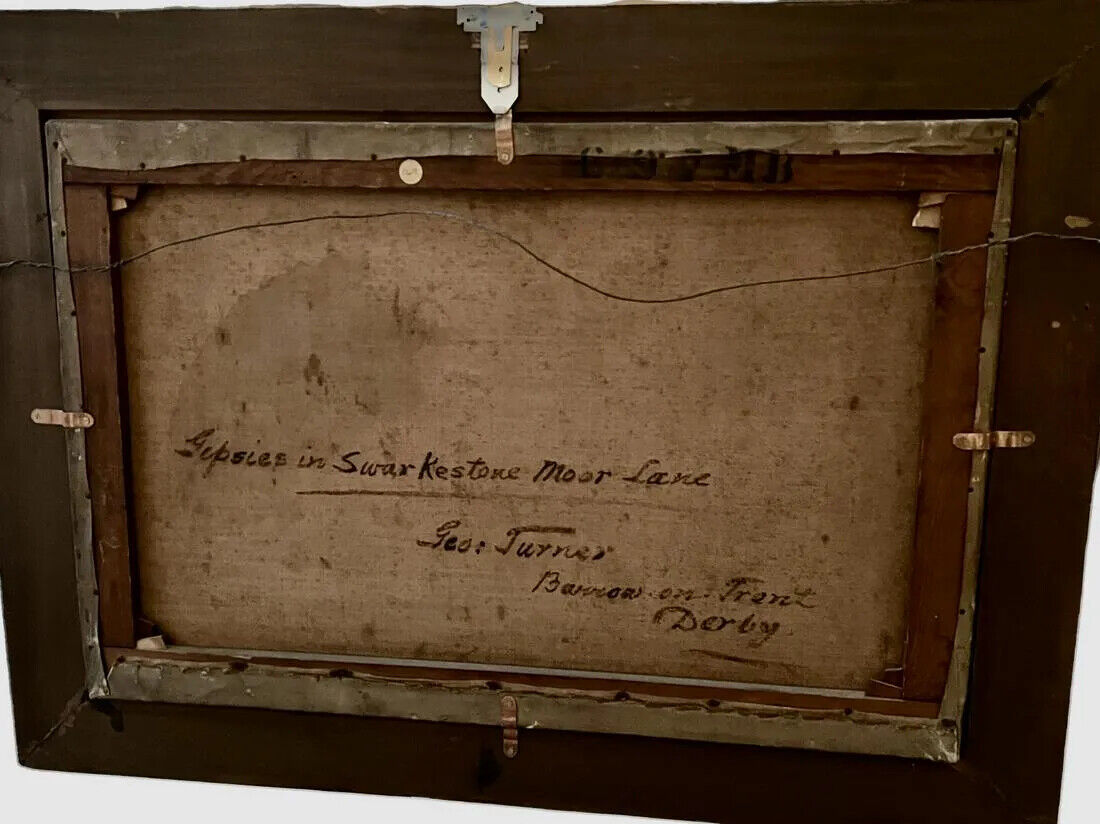 Gipsies in Swarkestone Moor Lane
Geo: Turner
Barrow-on-Trent
Derby